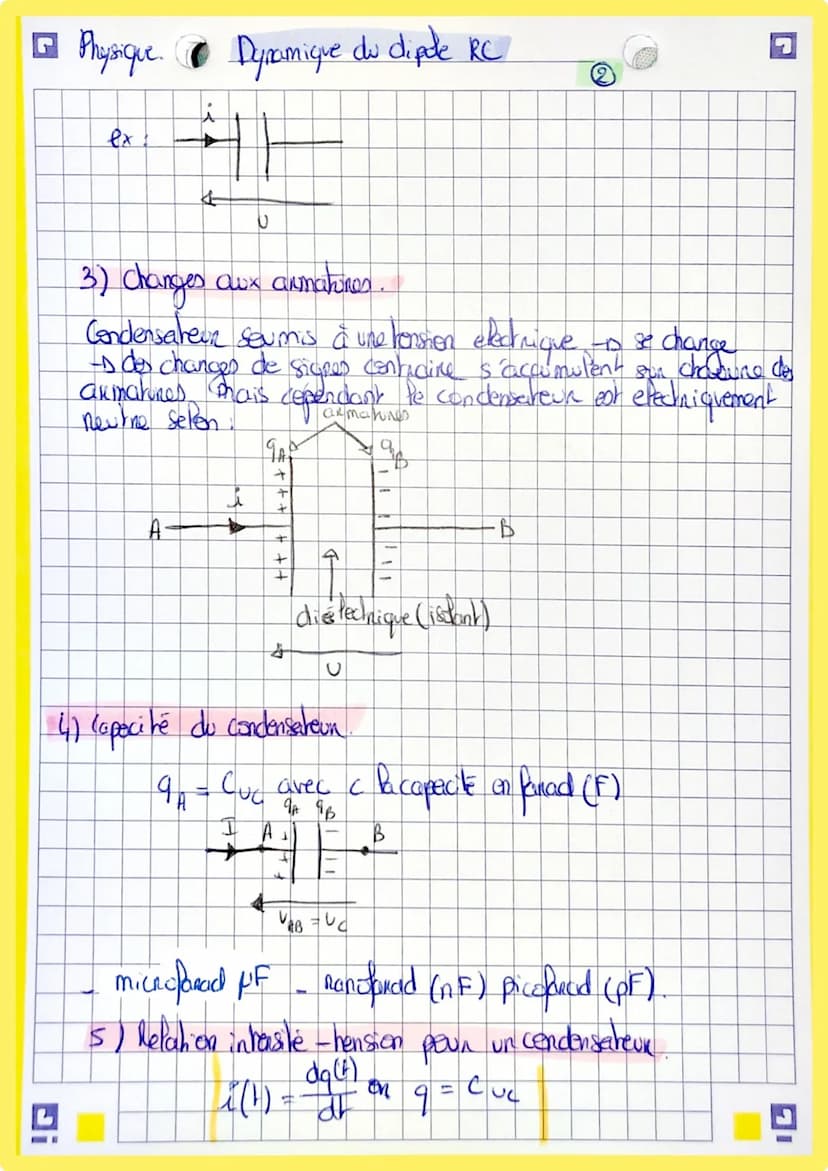 Physique. Dynamique du dipole RC
②
ex :
i
U
3) Charges aux armatures.
Condensateur soumis à une tension electrique → se charge
→ des charges de signes contraire s'accumulent sur chacune des
armatures, mais cependant le condensateur est electriquement
neutre selon :
armatures
qA qB
i
A B
diélectrique (isolant)
U
4) Capacité du condensateur.
qA = C uC avec C la capacité en farad (F)
qA qB
I A B
UAB = UC
- microfarad µF - nanofarad (nF) picofarad (pF).
5) Relation intensité - tension pour un condensateur
i(t) = dq(t)/dt or q = C uC